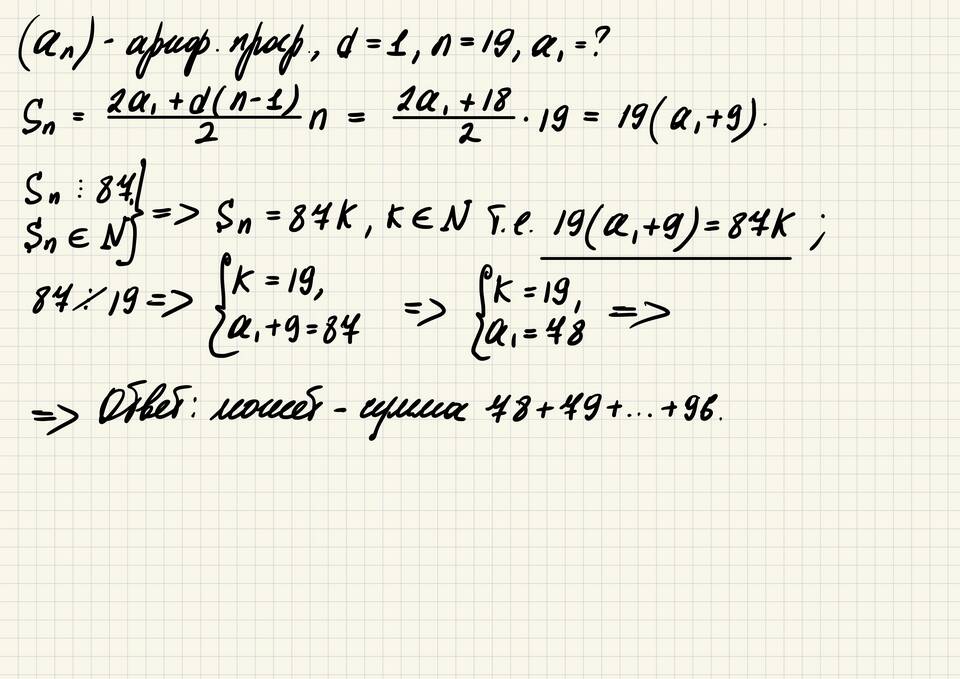 (aₙ) - ариф. прогр., d = 1, n = 19, a₁ = ?
Sₙ = (2a₁ + d(n-1))/2 n = (2a₁ + 18)/2 · 19 = 19(a₁+9).
{Sₙ ⋮ 87, Sₙ ∈ N} => Sₙ = 87k, k ∈ N т.е. 19(a₁+9) = 87k ;
87 ⋮̸ 19 => {k = 19, a₁+9 = 87 => {k = 19, a₁ = 78 =>
=> Ответ: может - сумма 78 + 79 + ... + 96.